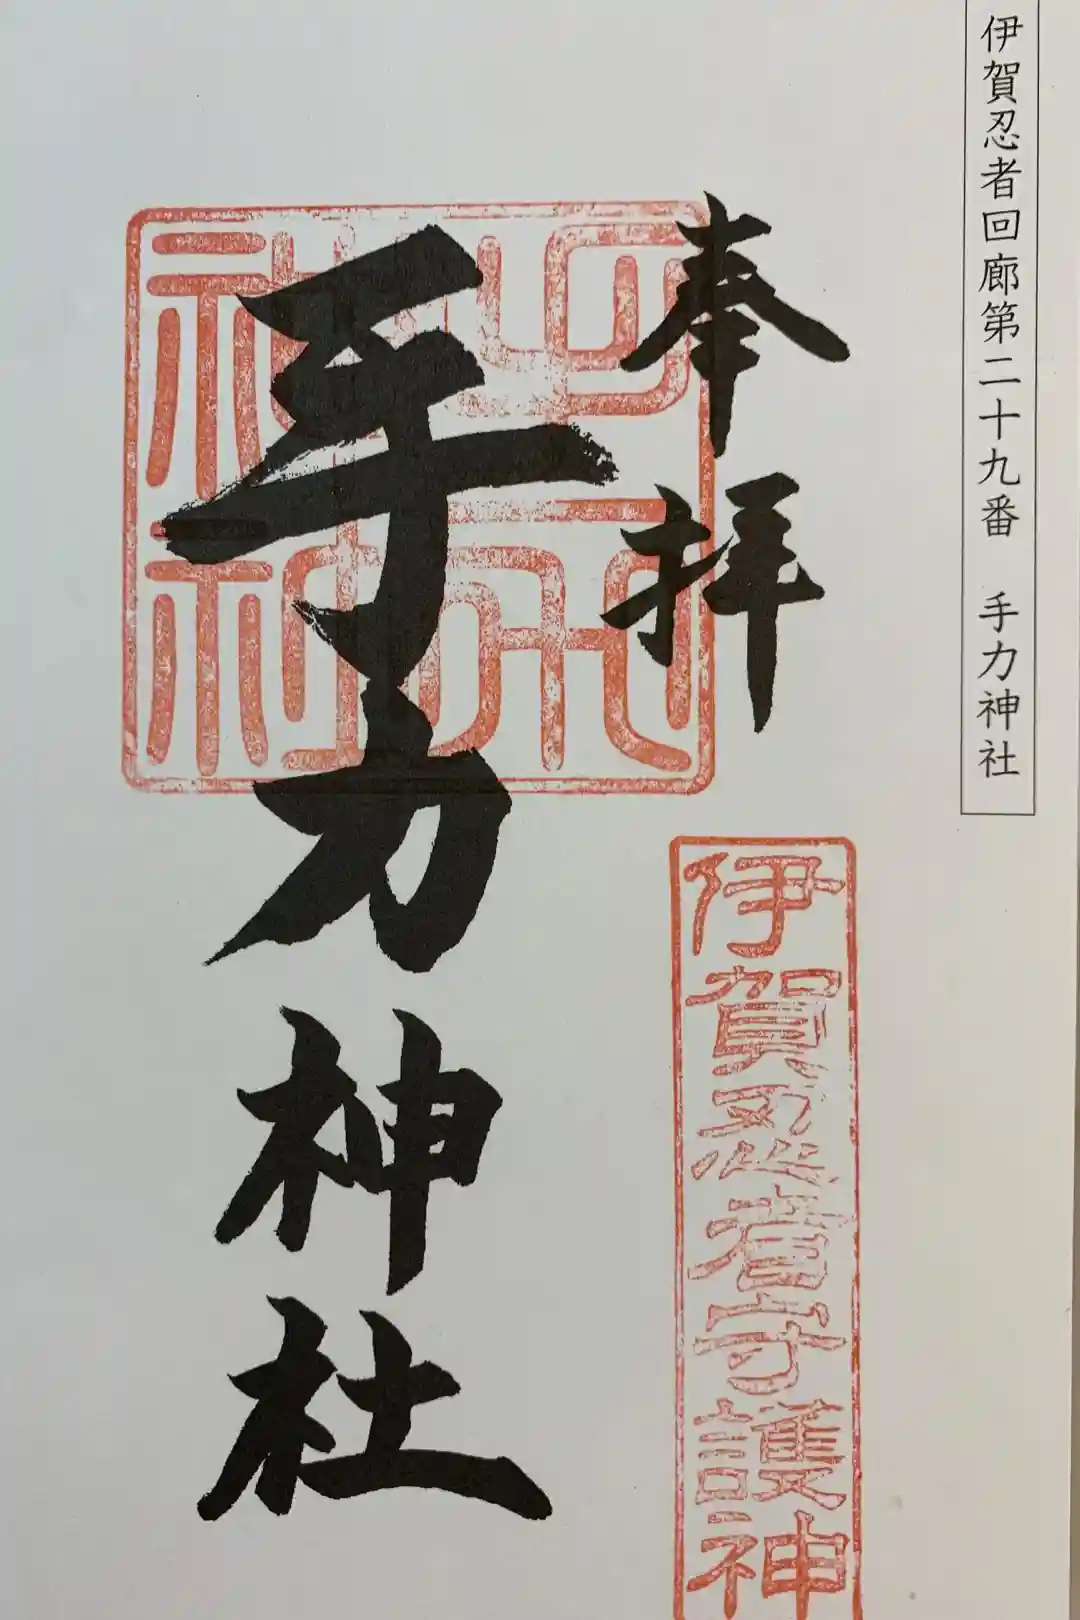 伊賀忍者回廊第二十九番 手力神社
奉拝
伊賀忍者守護神
手力神社